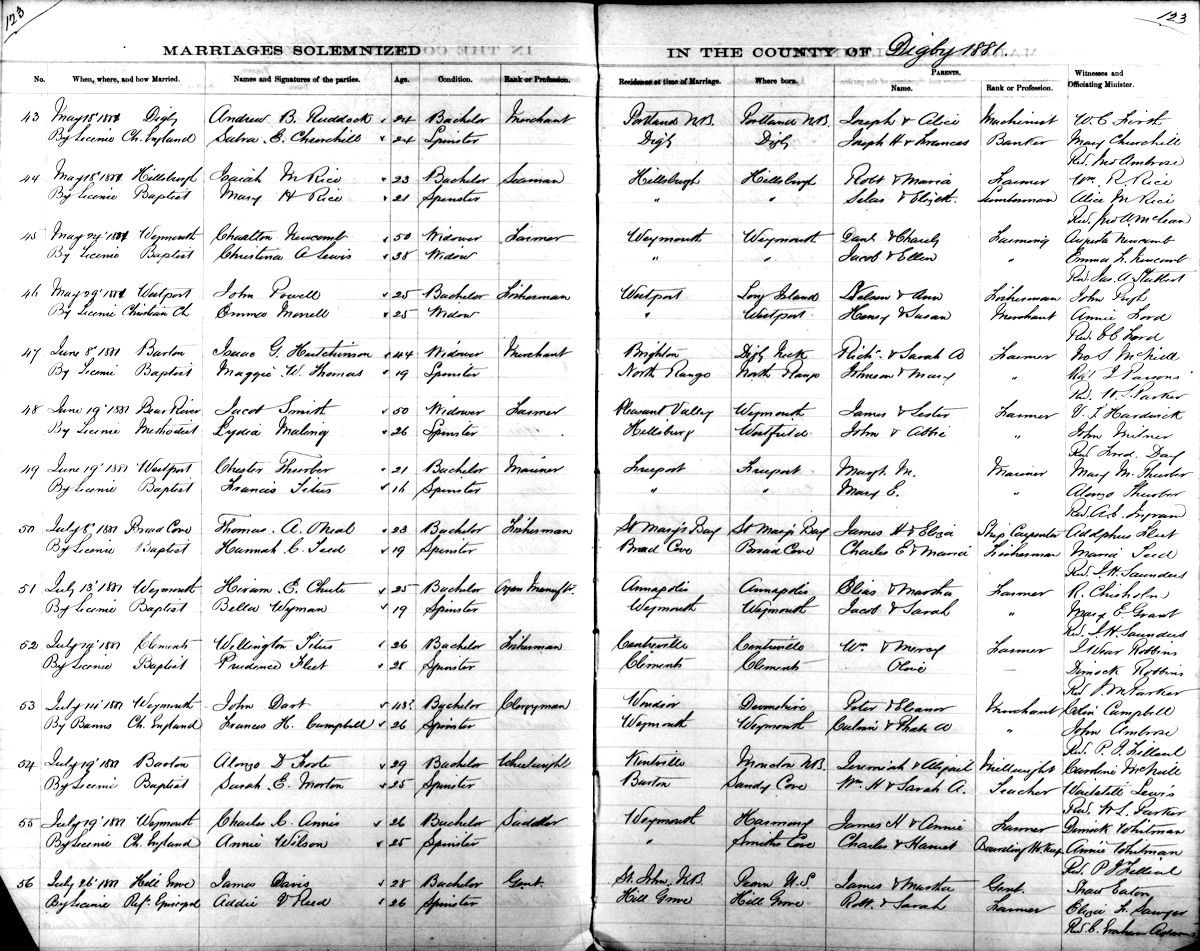 123
123
MARRIAGES SOLEMNIZED IN THE COUNTY OF Digby 1881.
No. When, where, and how Married. Names and Signatures of the parties. Age. Condition. Rank or Profession. Residence at time of Marriage. Where born. PARENTS. Name. Rank or Profession. Witnesses and Officiating Minister.
43 May 18th 1881 Digby Andrew B. Ruddock 24 Bachelor Merchant Portland N.B. Portland N.B. Joseph & Alice Machinist W. C. Firth
By Licence Ch. England E. Churchill 24 Spinster Digby Digby Joseph H & Frances Banker Mary Churchill
Rev. Jno Ambrose
44 May 18th 1881 Hillsburgh Isaiah M Rice 23 Bachelor Seaman Hillsburgh Hillsburgh Robt & Maria Farmer Wm. R. Rice
By Licence Baptist Mary H Rice 21 Spinster " " Silas & Lumberman Alice M Rice
Rev. McLean
45 May 24th 1881 Weymouth Charlton Newcomb 50 Widower Farmer Weymouth Weymouth Danl & Farming Augusta Newcomb
By Licence Baptist Christina A Lewis 38 Widow " " Jacob & Ellen " Emma Newcomb
Rev. Jas. A.
46 May 29th 1881 Westport John Powell 25 Bachelor Fisherman Westport Long Island & Ann Fisherman John Pugh
By Licence Christian Ch. Emma Morrell 25 Widow " Westport Henry & Susan Merchant Annie Ford
Rev. Ford
47 June 8th 1881 Barton Isaac G. Hutchinson 44 Widower Merchant Brighton Digby Neck Richd. & Sarah A Farmer S McNeill
By Licence Baptist Maggie W. Thomas 19 Spinster North Range North Range Johnson & Mary " Parsons
Rev. Parker
48 June 19th 1881 Bear River Jacob Smith 50 Widower Farmer Pleasant Valley Weymouth James & Farmer Hardwick
By Licence Methodist Lydia Maling 26 Spinster Hillsburg Westfield John & Abbie " John Milner
Rev. Day
49 June 19th 1881 Westport Chester Thurber 21 Bachelor Mariner Freeport Freeport M. Mariner Mary M. Thurber
By Licence Baptist Francis Titus 16 Spinster " " Mary E. " Alonzo Thurber
Rev. Ingram
50 July 8th 1881 Broad Cove Thomas A. ONeal 23 Bachelor Fisherman St Mary's Bay St Mary's Bay James H & Eliza Ship Carpenter Adolphus
By Licence Baptist Hannah C. Teed 19 Spinster Broad Cove Broad Cove Charles E & Maria Fisherman Maria Teed
Rev. J. H. Saunders
51 July 13th 1881 Weymouth Hiram E. Chute 25 Bachelor Organ Manuftr. Annapolis Annapolis Elias & Martha Farmer R. Chisholm
By Licence Baptist Bella Wyman 19 Spinster Weymouth Weymouth Jacob & Sarah " Mary E Grant
Rev. J. H. Saunders
52 July 19th 1881 Clements Wellington Titus 26 Bachelor Fisherman Centreville Centreville Wm. & Mercy Farmer J Wear Robbins
By Licence Baptist Prudence 28 Spinster Clements Clements Olive — Dimock Robbins
Rev. Parker
53 July 14th 1881 Weymouth John Dart 43 Bachelor Clergyman Windsor Devonshire Peter & Eleanor Merchant Campbell
By Banns Ch. England Frances H. Campbell 26 Spinster Weymouth Weymouth Calvin & Phebe A " John Ambrose
Rev. P. J. Filleul
54 July 19th 1881 Barton Alonzo D Foote 29 Bachelor Wheelwright Kentville N.B. Jeremiah & Abigail Millwright Caroline McNeill
By Licence Baptist Sarah E. Morton 25 Spinster Barton Sandy Cove Wm. H & Sarah A. Teacher Lewis
Rev. Parker
55 July 19th 1881 Weymouth Charles C. Annis 26 Bachelor Saddler Weymouth Harmony James H & Annie Farmer Dimock Whitman
By Licence Ch. England Annie Wilson 25 Spinster " Smiths Cove Charles & Harriet Boarding Ho. Keep Annie Whitman
Rev. P J Filleul
56 July 26th 1881 Hill Grove James Davis 28 Bachelor Gent. St. John, N.B. U.S. James & Martha Gent. Eaton
By Licence Ref. Episcopal Addie V Reed 26 Spinster Hill Grove Hill Grove Robt. & Sarah Farmer Eliza Sawyer
Rev. Adams